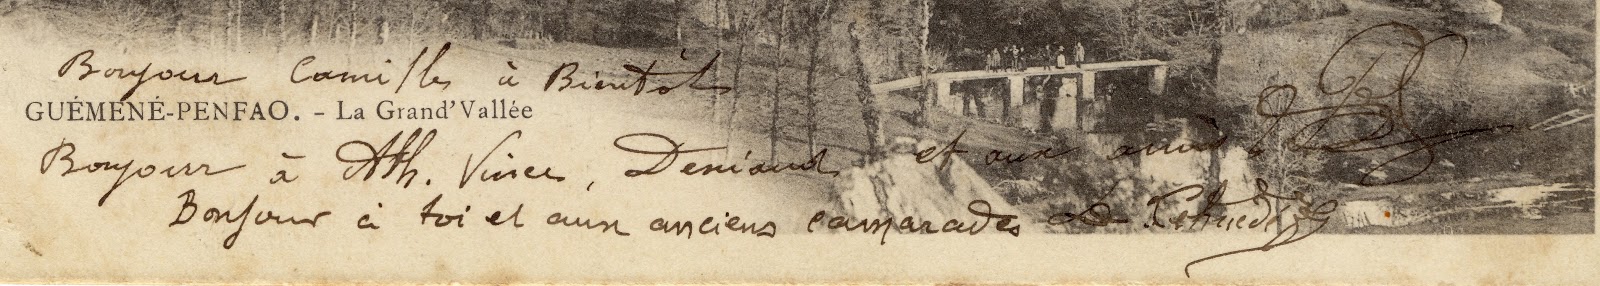 Bonjour Camille à Bientôt
GUÉMENÉ-PENFAO. - La Grand'Vallée
Bonjour à Ath. Vince, Deniaud et aux amis
Bonjour à toi et aux anciens camarades